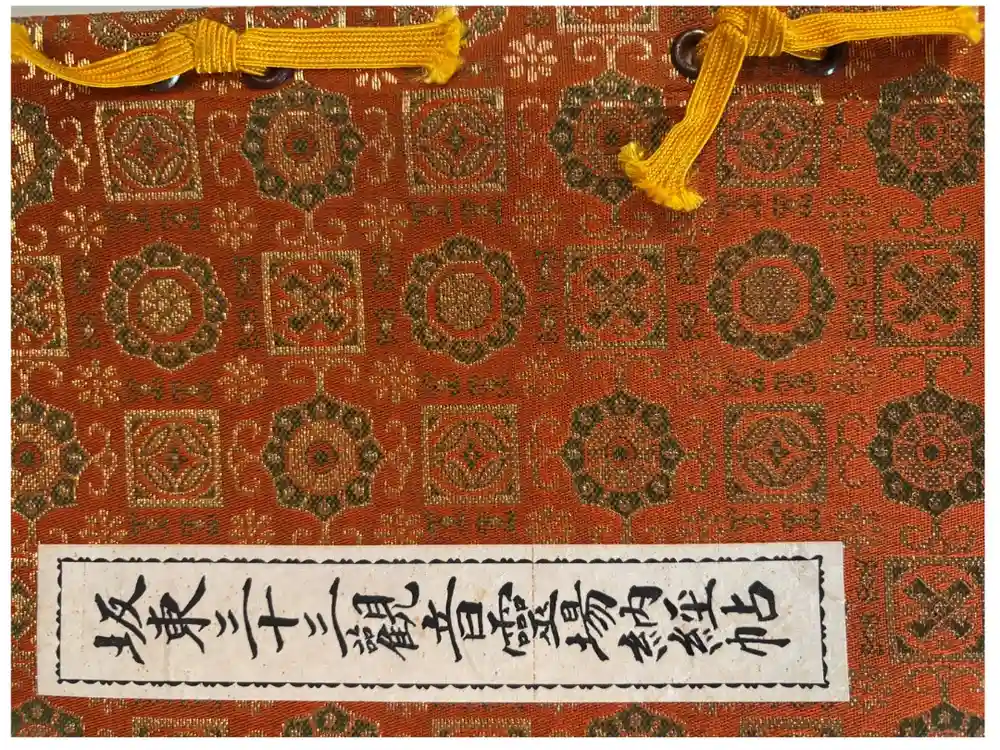 坂東三十三觀音靈場納経帖